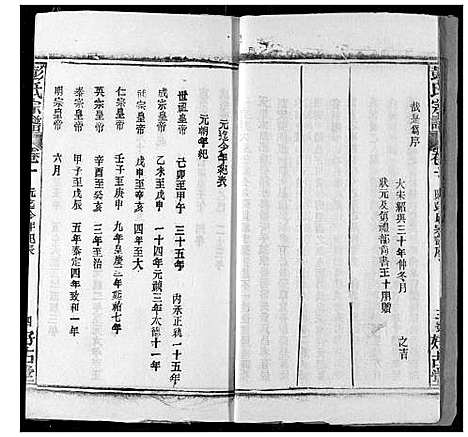 彭氏宗譜
卷一
敍是爲序
大宋紹興三十年仲冬月
狀元及第禮部尚書王十朋贈
之書
好古堂
元迄今年紀表
元朝年紀
世祖皇帝 己卯至甲午 三十五年 內承正統一十五年
成宗皇帝 乙未至戊申 一十四年元貞三年大德十一
武宗皇帝 戊申至辛亥 四年至大
仁宗皇帝 壬子至庚申 九年皇慶二年延祐七年
英宗皇帝 辛酉至癸亥 三年至治
泰宗皇帝 甲子至戊辰 五年泰定四年致和一年
明宗皇帝 六月
彭氏宗譜
卷一
元迄今年紀表
四
好古堂